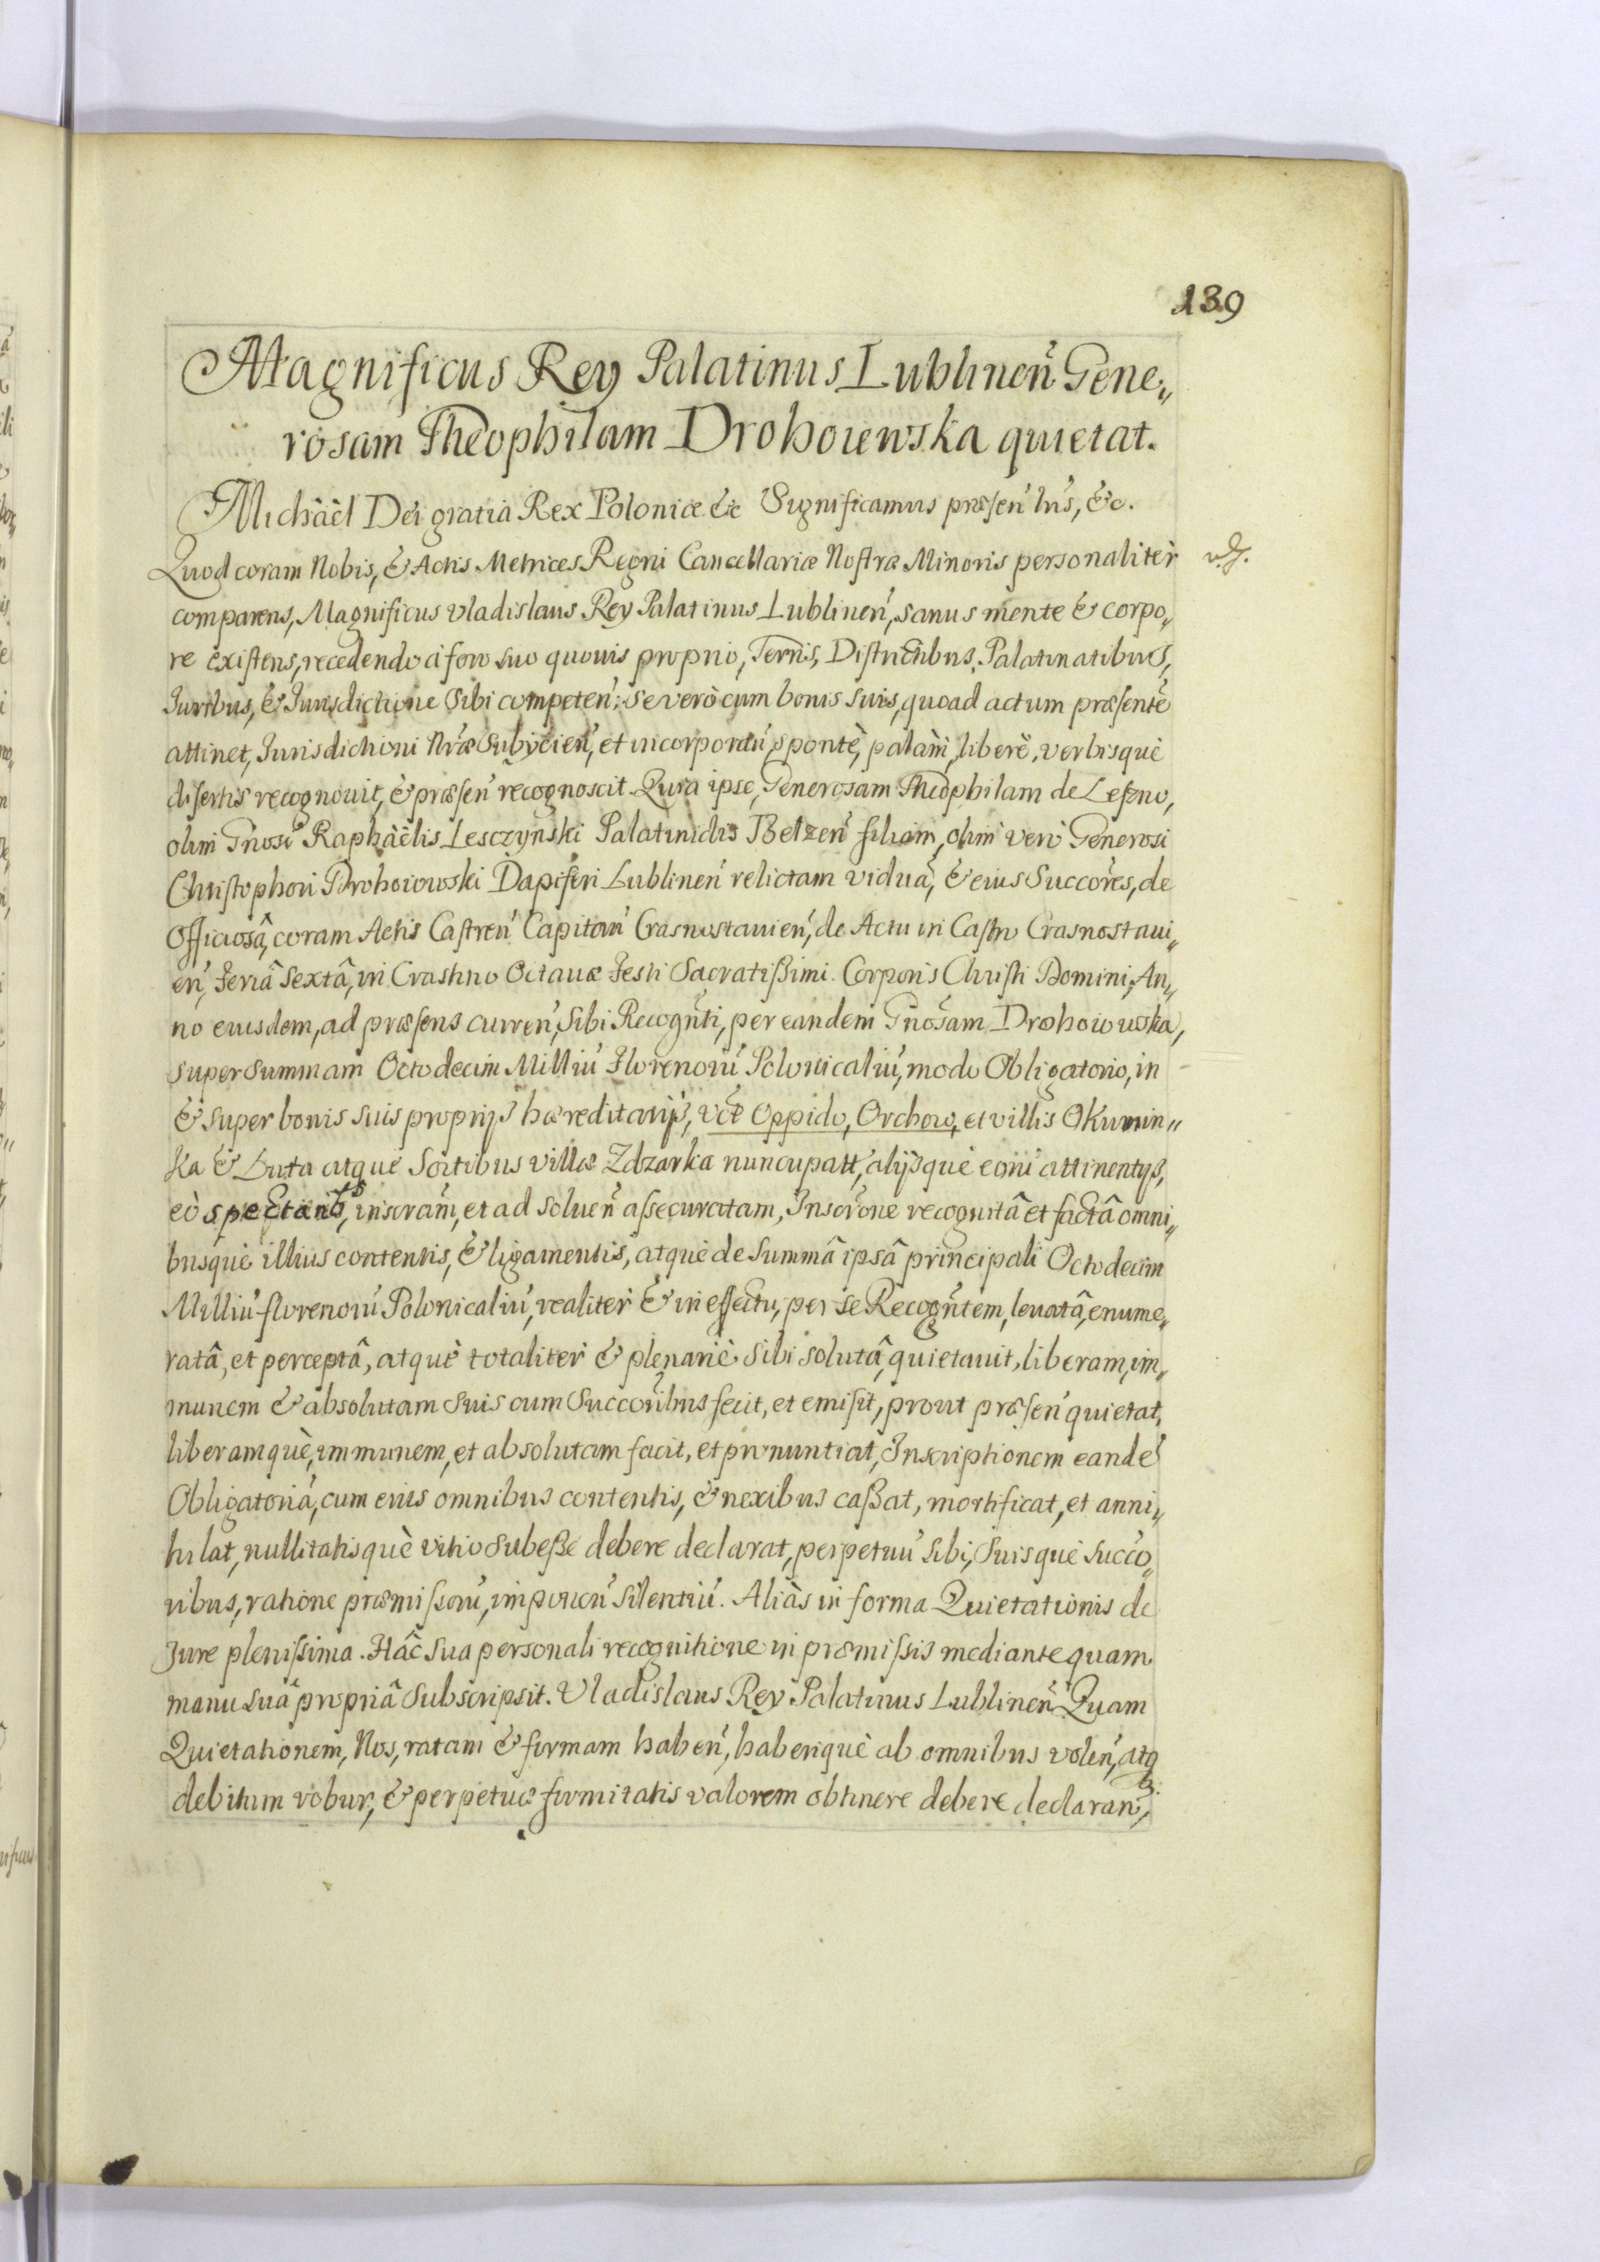 139
Magnificus Rey Palatinus Lublinen̄ Gene„
rosam Theophilam Drohoiewska quietat.
Michàèl Dei gratia Rex Poloniæ &c Significamus præsen̄ bus, &c.
Quod coram Nobis, & Actis Metrices Regni Cancellariæ Nostræ Minoris personalitèr
comparens, Magnificus Vladislaus Rey Palatinus Lublinen̄, sanus mente & corpo„
re existens, recedendo à foro suo quovis proprio, Terris, Districtibus, Palatinatibus,
Juribus, & Jurisdictione sibi competen̄: se verò cum bonis suis, quoad actum præsentē
attinet, Jurisdictioni Nr̄æ subijcien̄, et incorporan̄, spontè, palàm, liberè, verbisquè
disertis recognovit, & præsen̄ recognoscit. Quia ipse, Generosam Theophilam de Leszno,
olim Gn̄osi Raphàèlis Lesczynski Palatinidis Belzen̄ filiam, olim verò Generosi
Christophori Drohoiowski Dapiferi Lublinen̄ relictam viduā, & eius Succōres, de
Officiosâ, coram Actis Castren̄ Capitan̄ Crasnostavien̄, de Actu in Castro Crasnostavi„
en̄, Feriâ Sextâ, in Crastino Octavæ Festi Sacratißimi Corporis Christi Domini, An„
no eiusdem, ad præsens curren̄, sibi Recogn̄ti, per eandem Gn̄osam Drohoiowska,
super summam Octodecim Milliū Florenorū Polonicaliū, modo Obligatorio, in
& super bonis suis proprijs hæreditarijs, vc̄t Oppido, Orchow, et villis Okunin„
ka & Luta atquè Sortibus villæ Zdzarka nuncupatt̄, alijsquè eorū attinentijs,
eò spectantb9, inscram̄, et ad solven̄ assecuratam, Inscr̄one recognitâ et factâ omni„
busquè illius contentis, & ligamentis, atquè de summâ ipsâ principali Octodecim
Milliū florenorū Polonicaliū, realitèr & in effectu, per se Recogn̄tem, levatâ, enume„
ratâ, et perceptâ, atquè totalitèr & plenariè sibi solutâ, quietavit, liberam, im„
munem & absolutam suis cum Succōribus fecit, et emisit, prout præsen̄ quietat,
liberamquè, immunem, et absolutam facit, et pronuntiat, Inscriptionem eandē
Obligatoriā, cum eius omnibus contentis, & nexibus caßat, mortificat, et anni„
hilat, nullitatisquè vitio subeße debere declarat, perpetuū sibi, suisquè succō„
ribus, ratione præmissorū, imponen̄ silentiū. Aliàs in forma Quietationis de
Jure plenissima. Hâc sua personali recognitione in præmissis mediante quam
manu suâ propriâ subscripsit. Vladislaus Rey Palatinus Lublinen̄ Quam
Quietationem, Nos, ratam & firmam haben̄, haberiquè ab omnibus volen̄, atq3
debitum robur, & perpetuæ firmitatis valorem obtinere debere declaran̄,